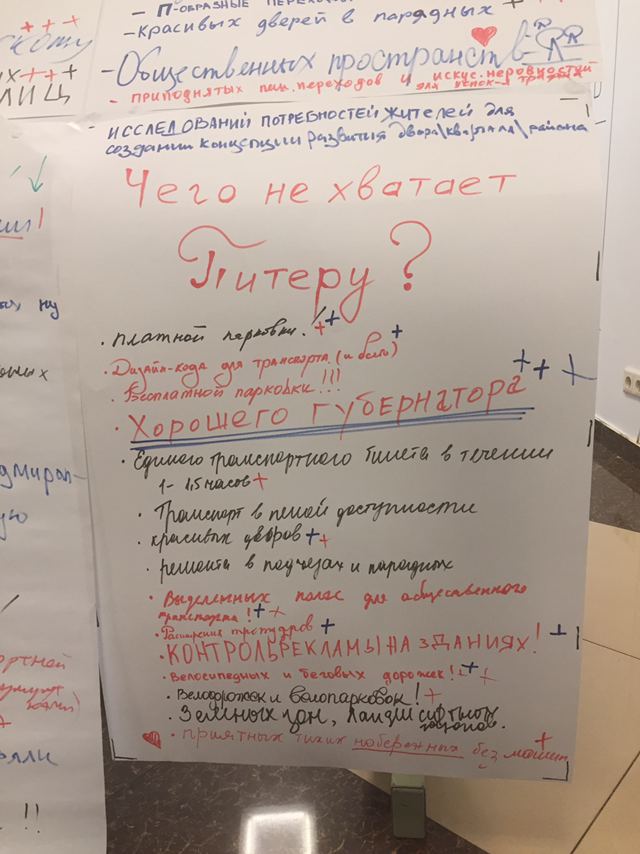 - П-ОБРАЗНЫЕ
- Красивых дверей в парадных +
- Общественных пространств
- приподнятых пеш. переходов и искус. неровностей
для успок-я трафика
- ИССЛЕДОВАНИЙ ПОТРЕБНОСТЕЙ ЖИТЕЛЕЙ ДЛЯ
СОЗДАНИИ КОНЦЕПЦИИ РАЗВИТИЯ ДВОРА\КВАРТАЛА\РАЙОНА
Чего не хватает
Питеру?
• платной парковки! ++
• Дизайн-кода для транспорта (и был) +
• Бесплатной парковки!!!
• Хорошего губернатора +++
• Единого транспортного билета в течении
1-1,5 часов +
• Транспорт в пешей доступности
• красивых дворов ++
• ремонта в подъездах и парадных
• Выделенных полос для общественного
транспорта! ++
• Расширения тротуаров +
• КОНТРОЛЬ РЕКЛАМЫ НА ЗДАНИЯХ! +
• Велосипедных и беговых дорожек! ++
• Велодорожек и велопарковок! +
• Зелёных зон,
• приятных тихих набережных без машин +
+++
ЛИЦ
ю
!!